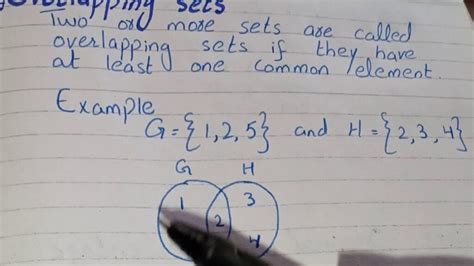 Overlapping sets
Two or more sets are called
overlapping sets if they have
at least one common element.
Example
G = {1, 2, 5} and H = {2, 3, 4}
G H
1 3
2
4